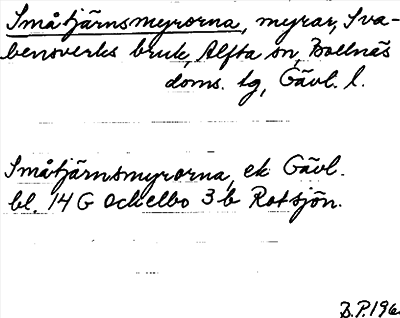 Småtjärnsmyrorna, myrar, Sva-
bensverks bruk, Alfta sn, Bollnäs
doms. tg, Gävl. l.
Småtjärnsmyrorna, ek Gävl.
bl. 14 G Ockelbo 3 b Rotsjön.
B.P.196